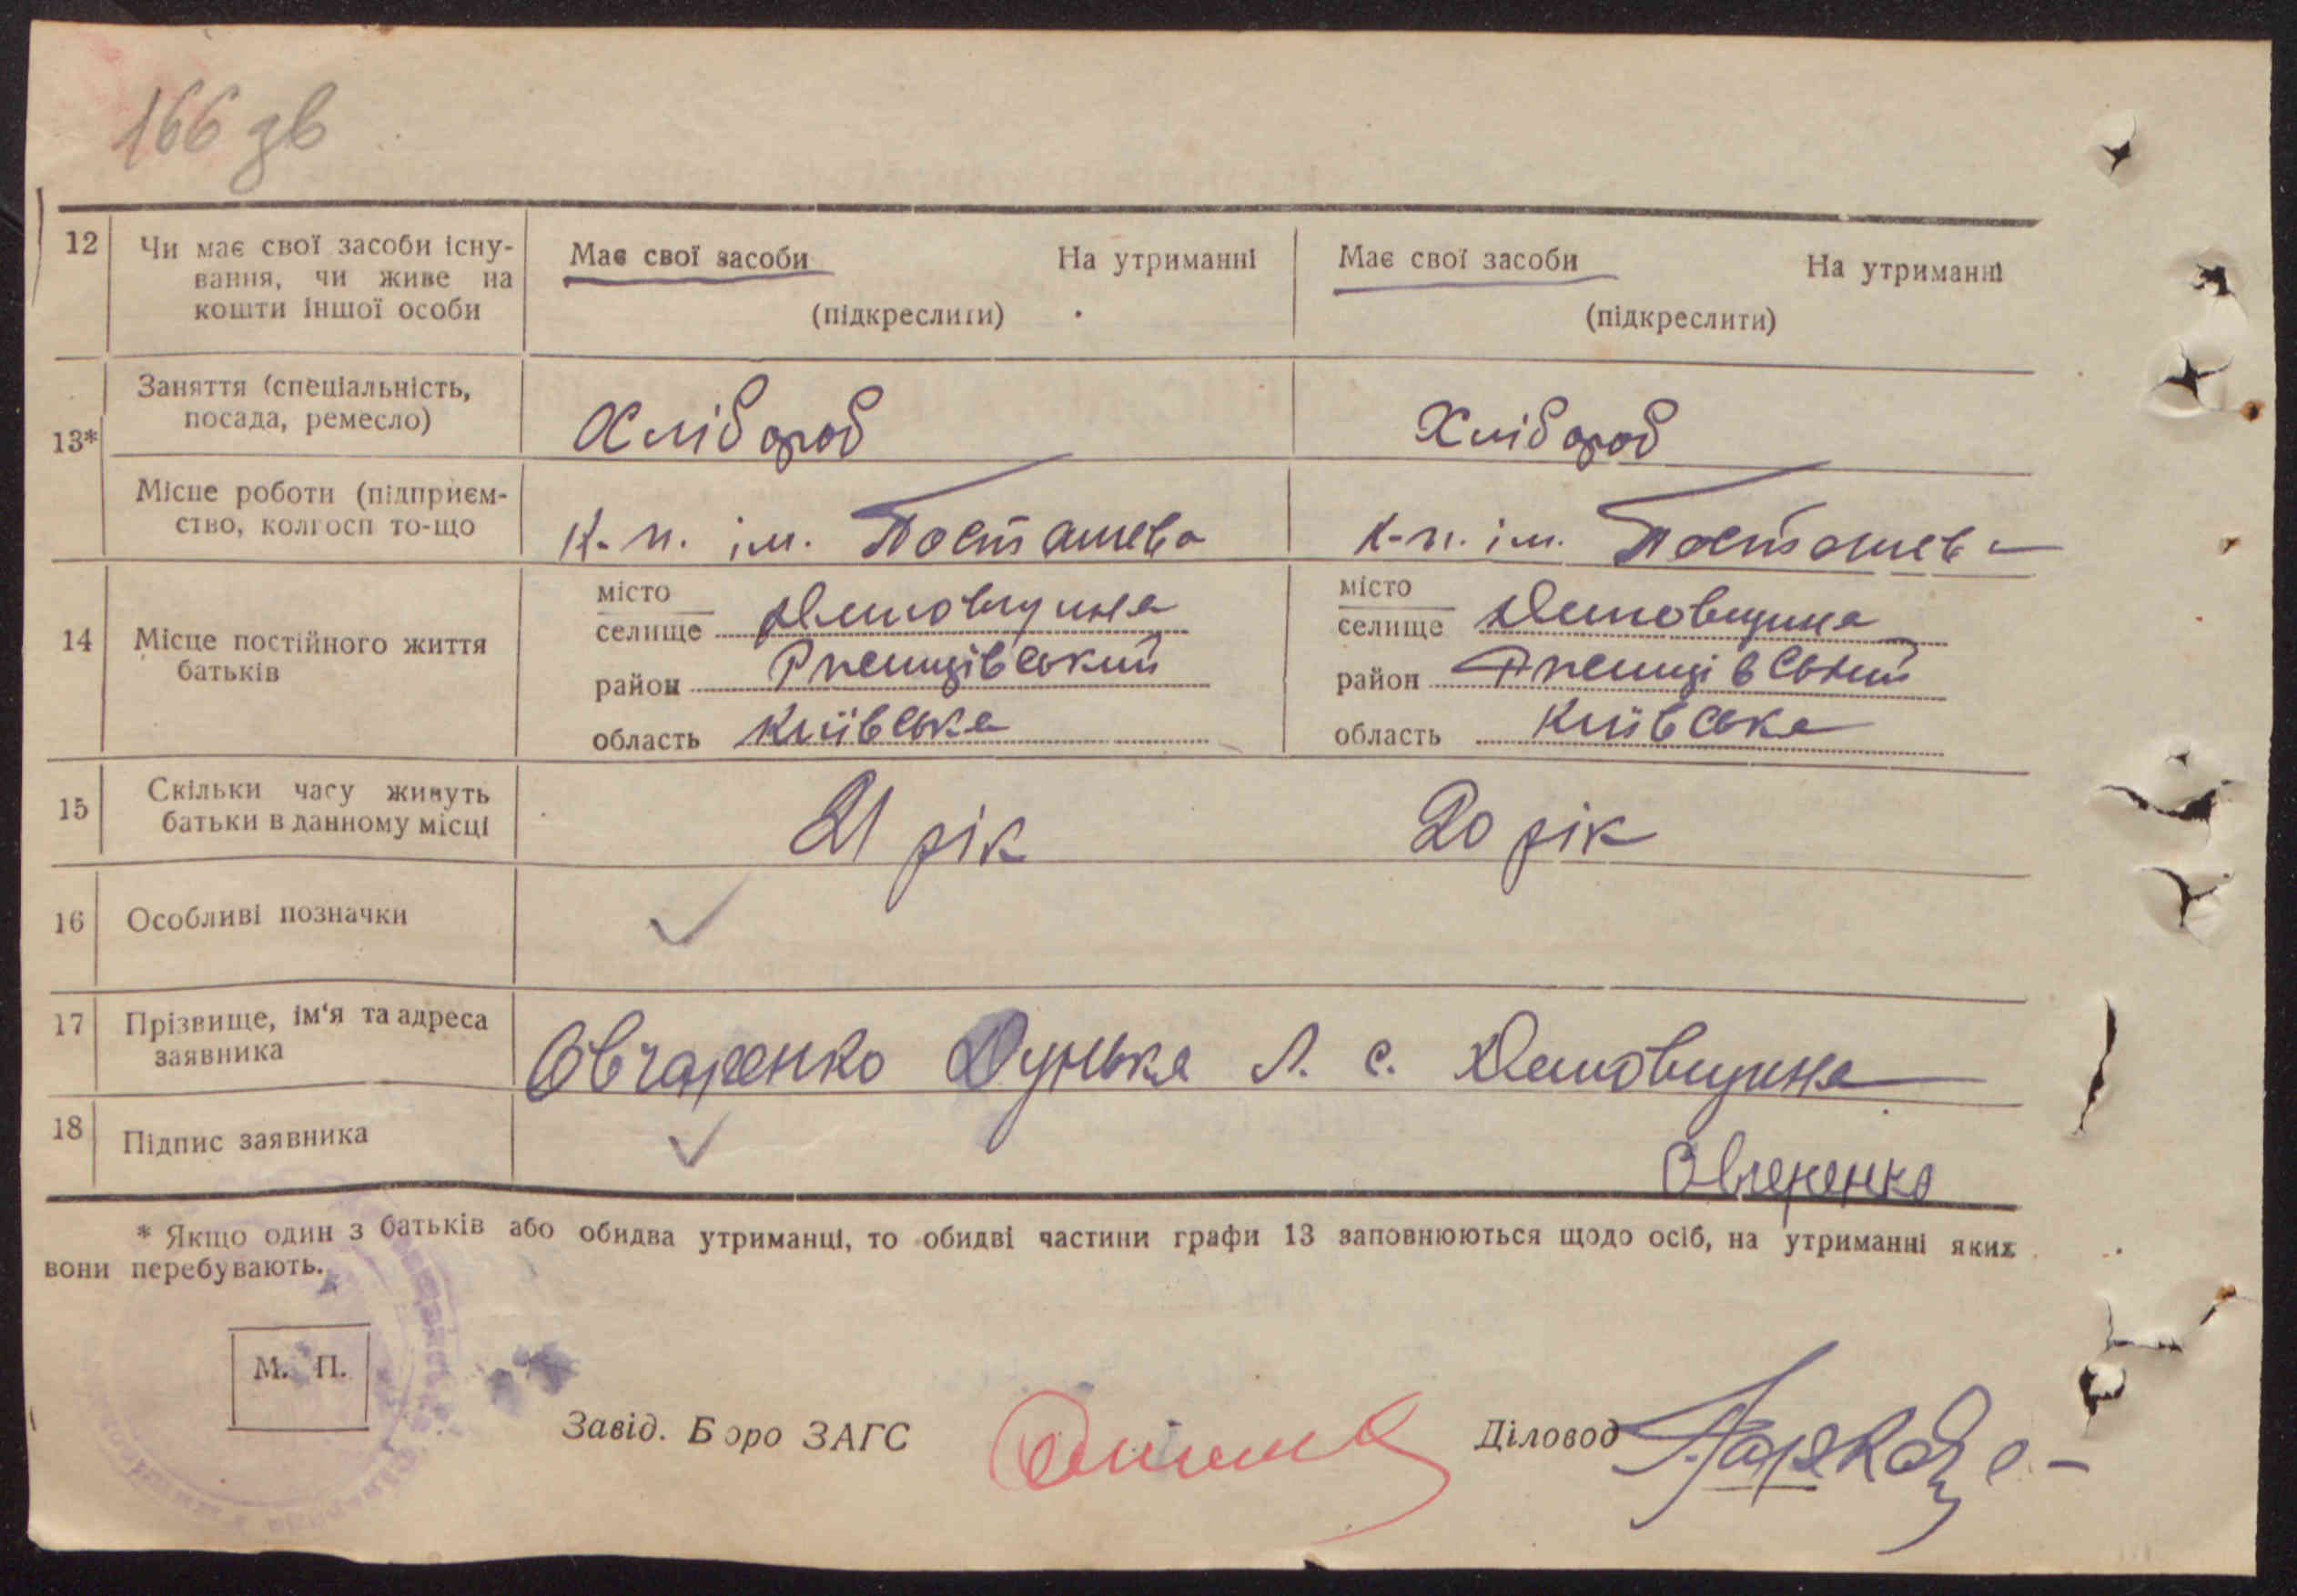 166 зв
12 Чи має свої засоби існу- Має свої засоби На утриманні Має свої засоби На утриманні
вання, чи живе на
кошти іншої особи (підкреслити) (підкреслити)
Заняття (спеціальність,
посада, ремесло) Хлібороб Хлібороб
13*
Місце роботи (підприєм-
ство, колгосп то-що к-п. ім. Посташева к-п. ім. Посташева
місто місто
селище Демовщина селище Демовщина
14 Місце постійного життя
батьків район район
область київська область київська
15 Скільки часу живуть
батьки в данному місці 21 рік 20 рік
16 Особливі позначки
17 Прізвище, ім'я та адреса
заявника Овчаренко Дунька Л. с. Демовщина
18 Підпис заявника Овчеренко
* Якщо один з батьків або обидва утриманці, то обидві частини графи 13 заповнюються щодо осіб, на утриманні яких
вони перебувають.
М. П.
Завід. Бюро ЗАГС Діловод